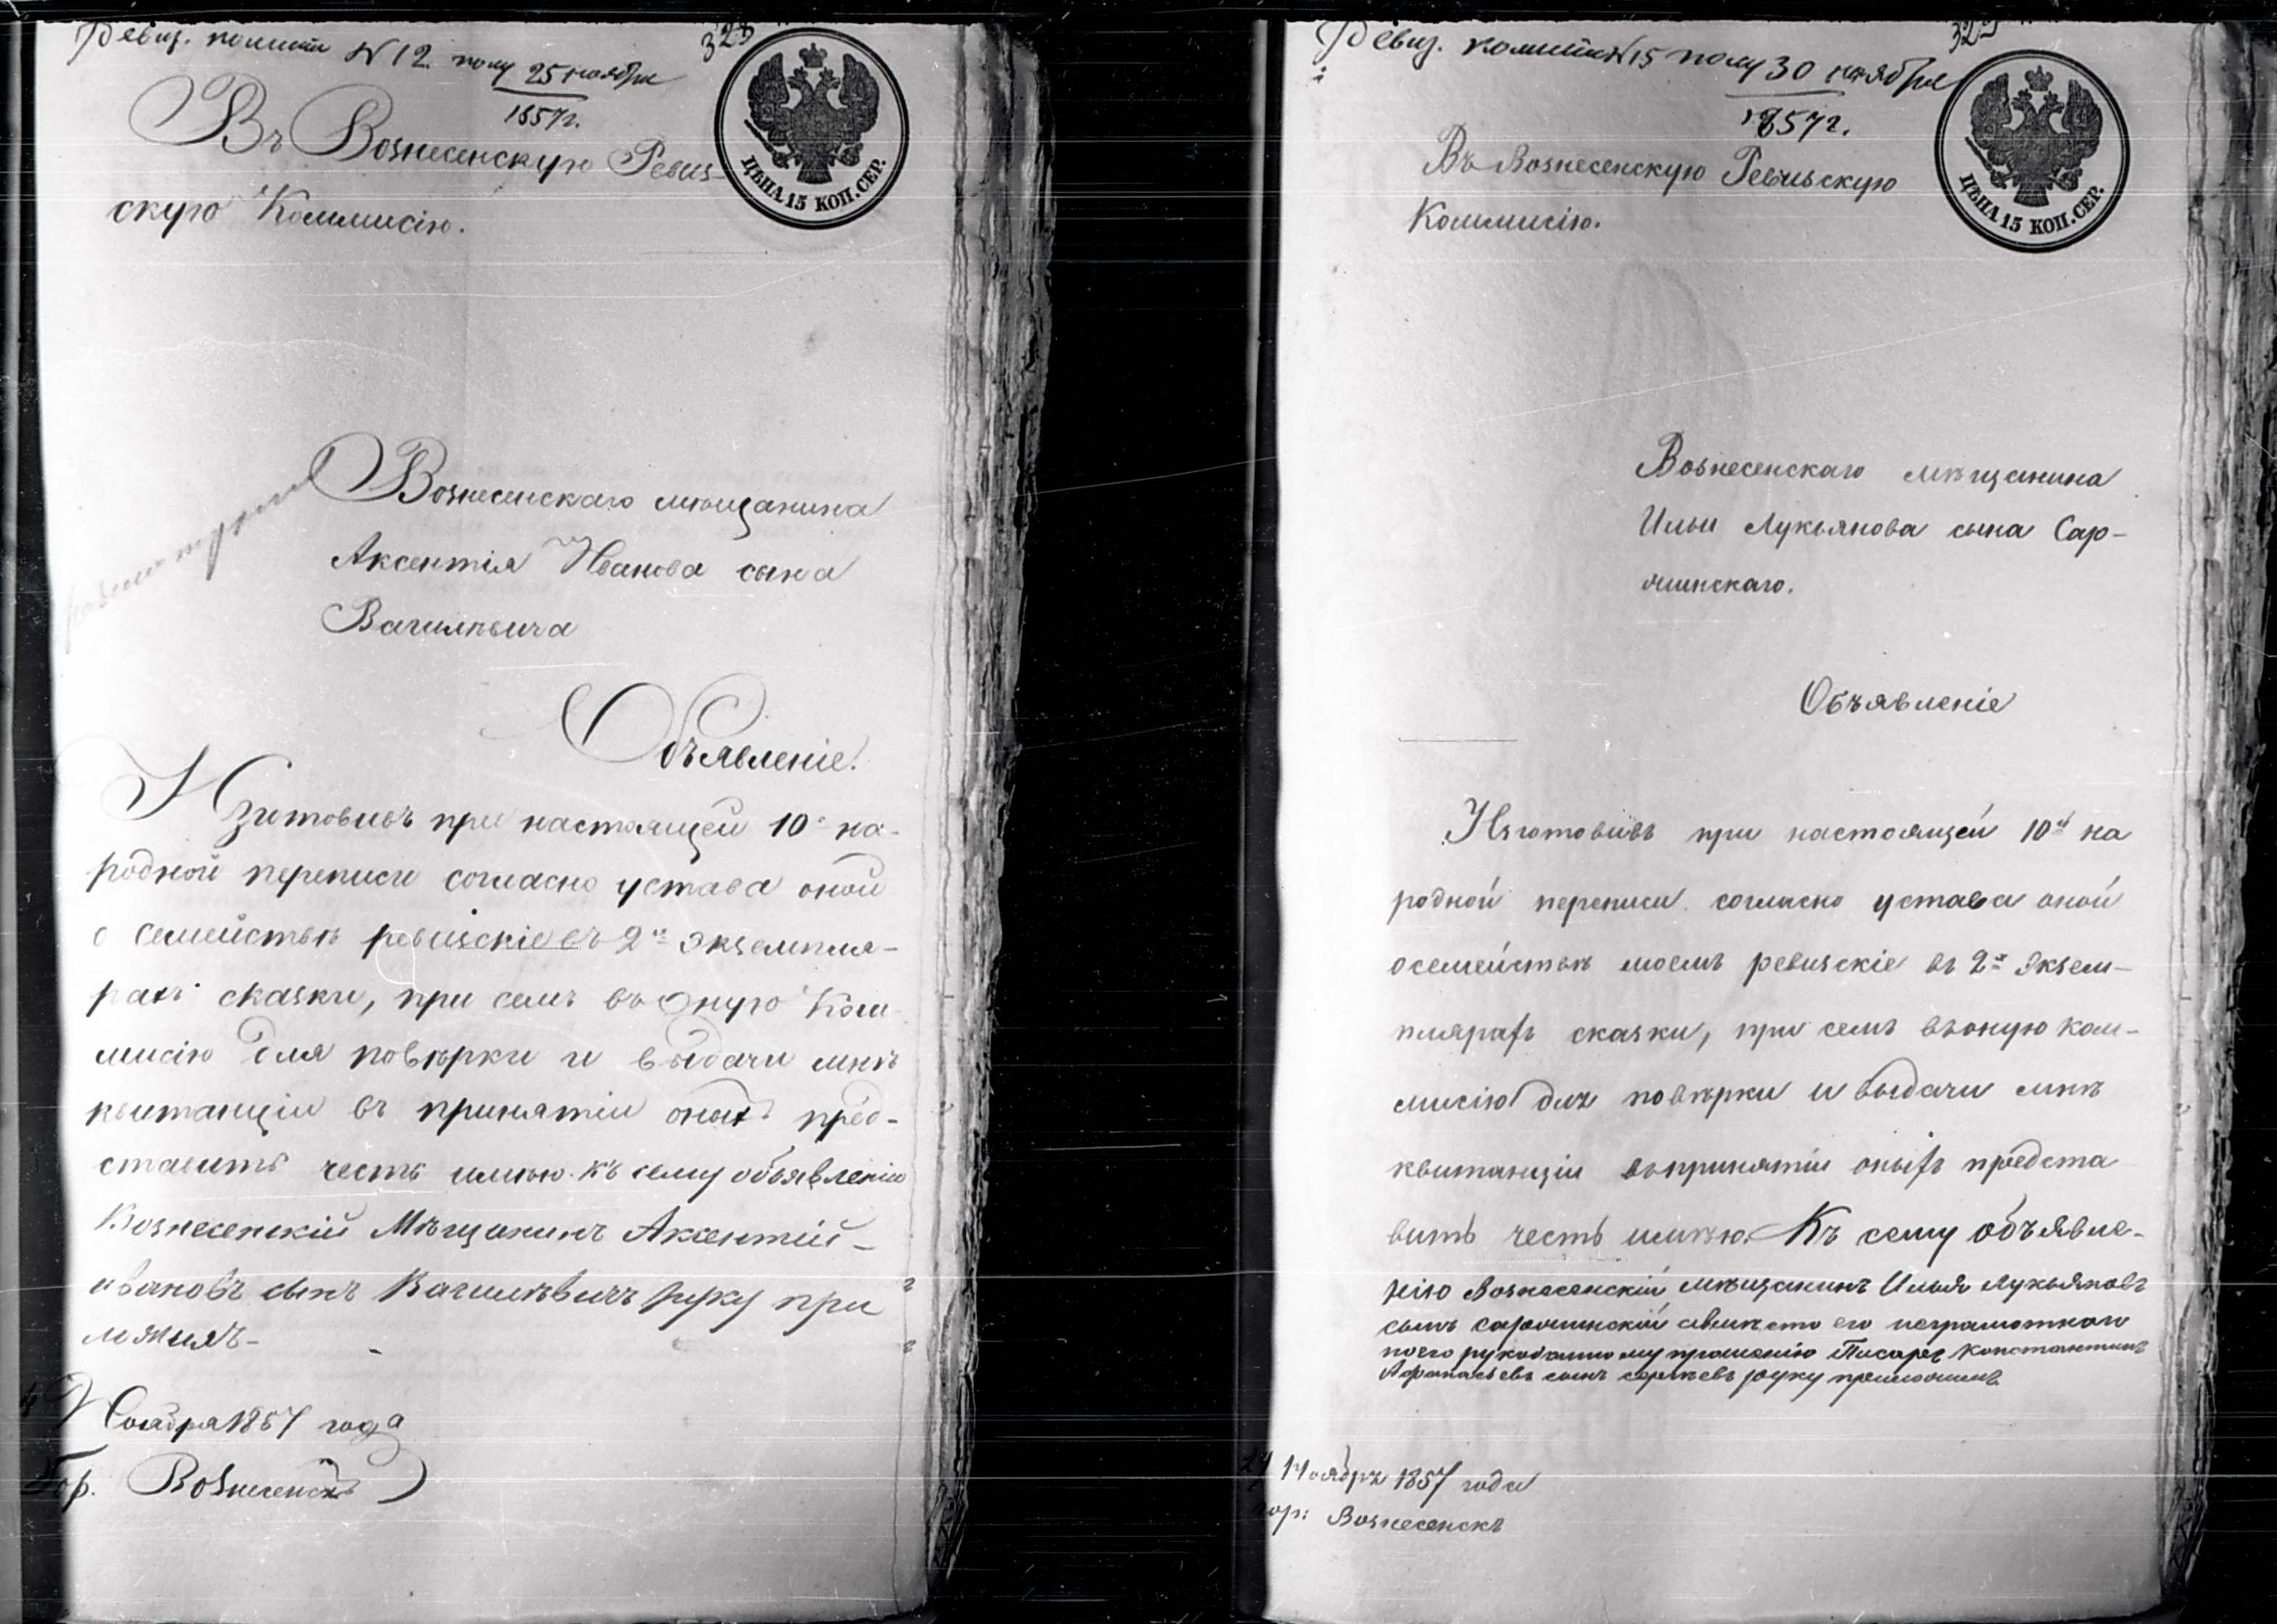 Ревиз. комисіи N 12. полу 25 ноября
1857г.
323
ЦѢНА 15 КОП. СЕР.
Въ Вознесенскую Ревиз-
скую Коммисію.
Вознесенскаго мѣщанина
Аксентія Иванова сына
Вагилѣвича
Объявленіе.
Изготовивъ при настоящей 10й на-
родной переписи согласно устава оной
о семействѣ ревизскіе въ 2хъ экземпля-
рахъ сказки, при семъ въ Оную Ком-
мисію для повѣрки и выдачи мнѣ
квитанціи въ принятіи оныхъ пред-
ставить честь имѣю. Къ сему объявленію
Вознесенскій Мѣщанинъ Аксентій
ивановъ сынъ Вагилѣвичъ руку при
ложилъ-
Ноября 1857 года
Гор. Вознесенскъ
Ревиз. комисіи N 15 полу 30 ноября
1857г.
ЦѢНА 15 КОП. СЕР.
Въ Вознесенскую Ревизскую
Коммисію.
Вознесенскаго мѣщанина
Ильи Лукьянова сына Сар-
очинскаго.
Объявленіе
Изготовивъ при настоящей 10й на
родной переписи согласно устава оной
о семействѣ моемъ ревизскіе въ 2хъ Экзем-
плярахъ сказки, при семъ въ оную Ком-
мисію для повѣрки и выдачи мнѣ
квитанціи въ принятіи оныхъ предста
вить честь имѣю. Къ сему объявле-
нію Вознесенскій мѣщанинъ Илья Лукьяновъ
сынъ сарочинскій авмѣсто его неграмотнаго
по его рукоданному прошенію Писарь Константинъ
Афанасьевъ сынъ руку приложилъ
24 Ноября 1857 года
гор: Вознесенскъ